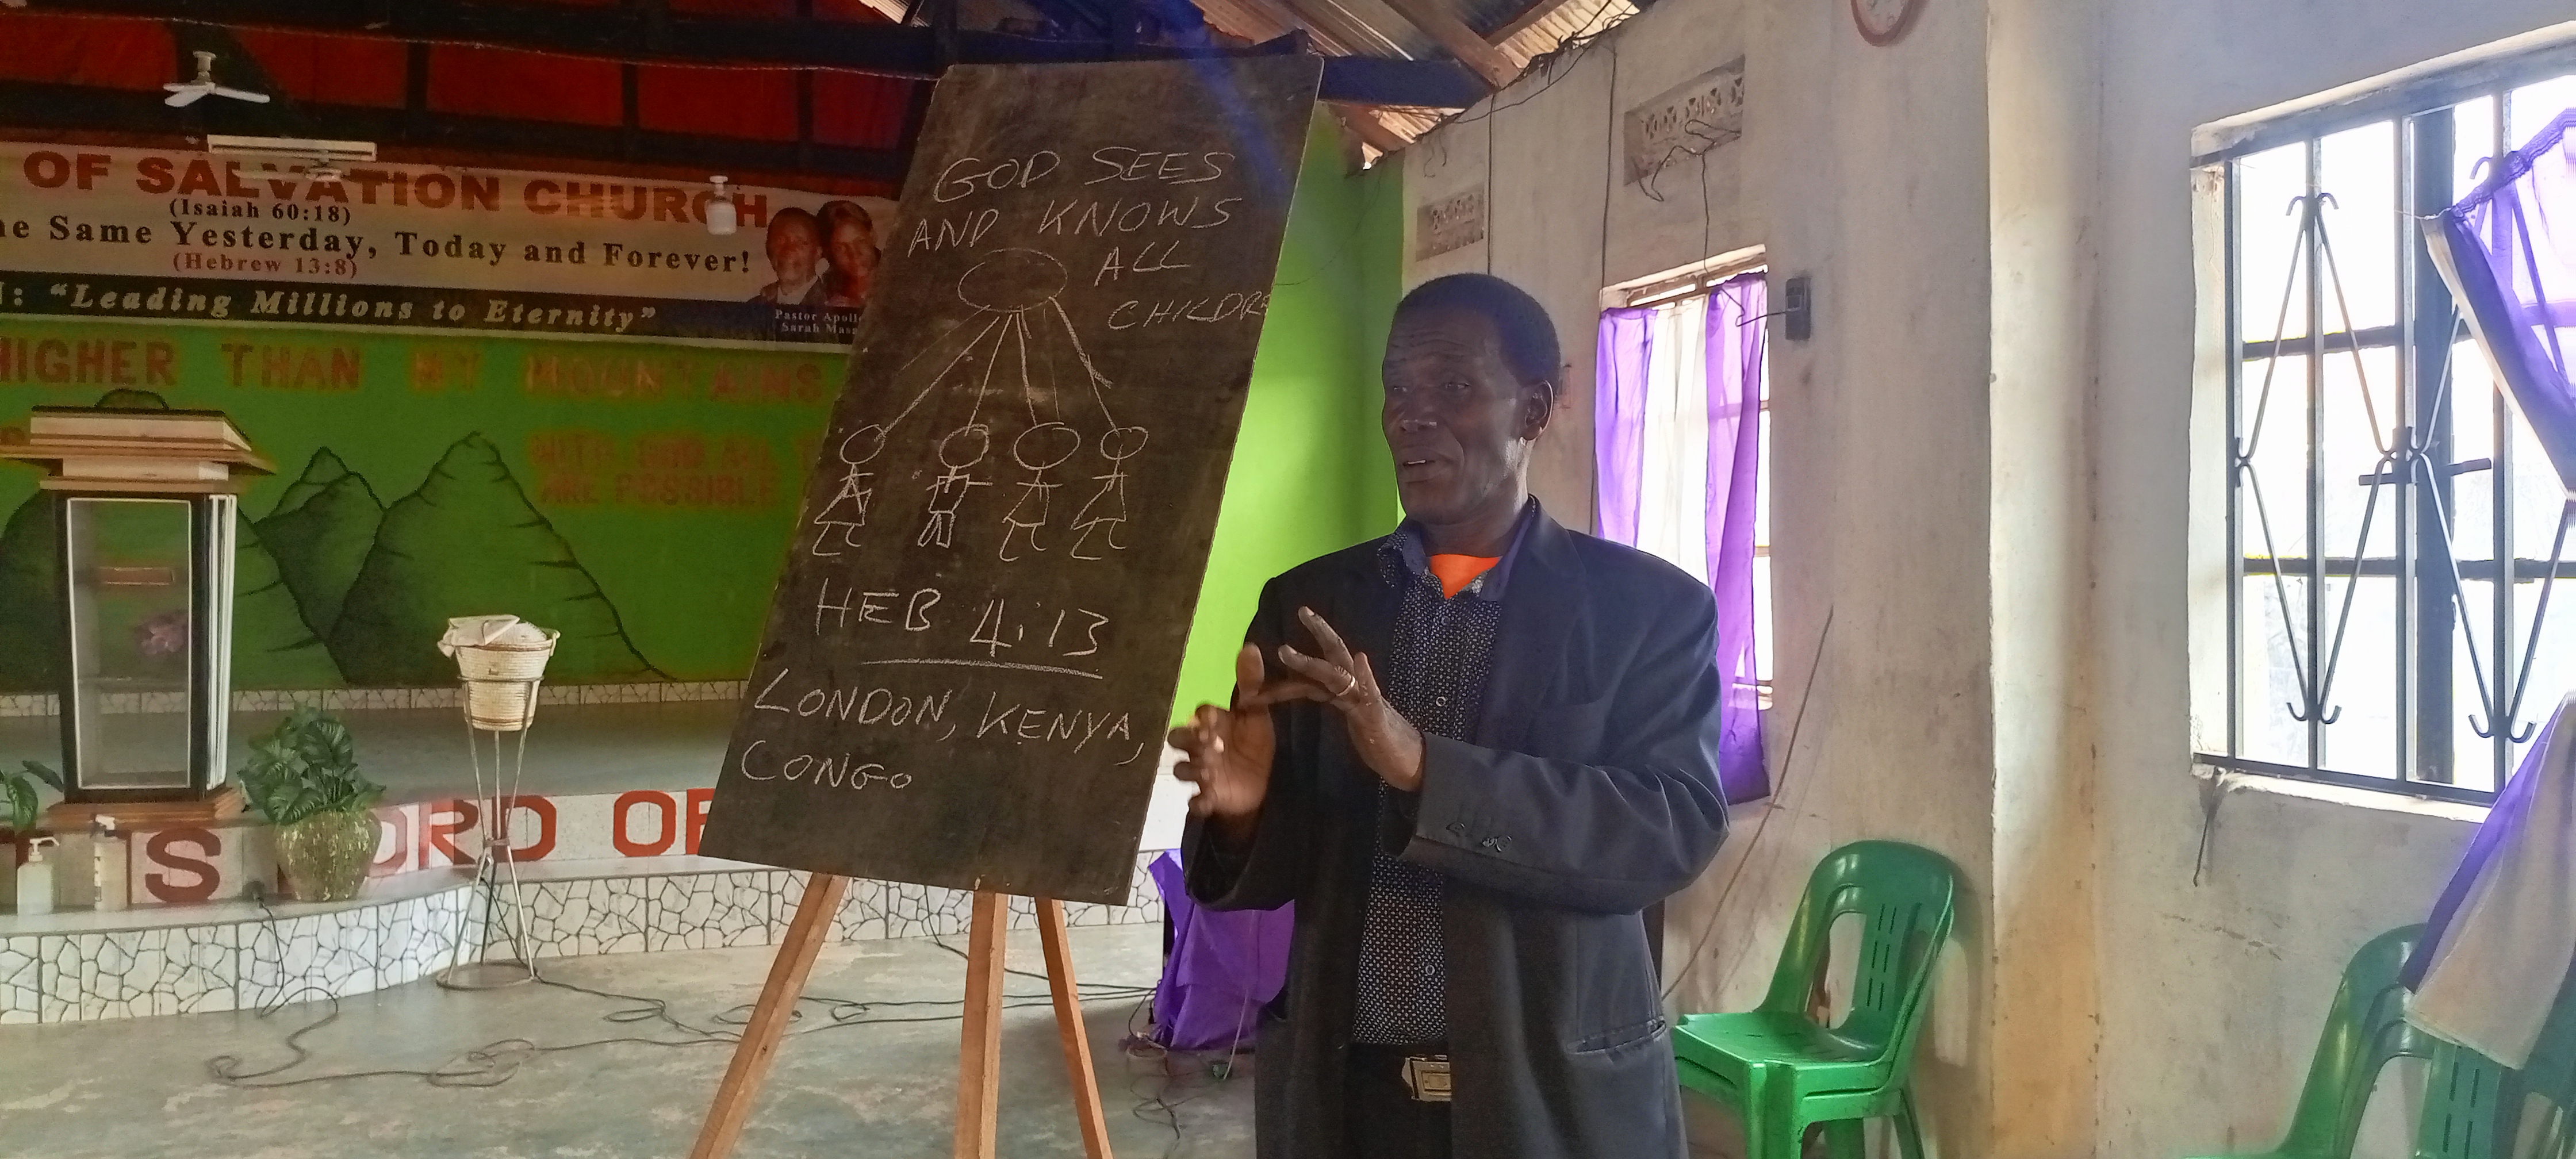 OF SALVATION CHURCH
(Isaiah 60:18)
Same Yesterday, Today and Forever!
(Hebrew 13:8)
"Leading Millions to Eternity"
Pastor
Sarah
HIGHER THAN MY MOUNTAINS
WITH GOD ALL
ARE POSSIBLE
GOD SEES
AND KNOWS
ALL
HEB 4:13
LONDON, KENYA,
CONGO
S
OF